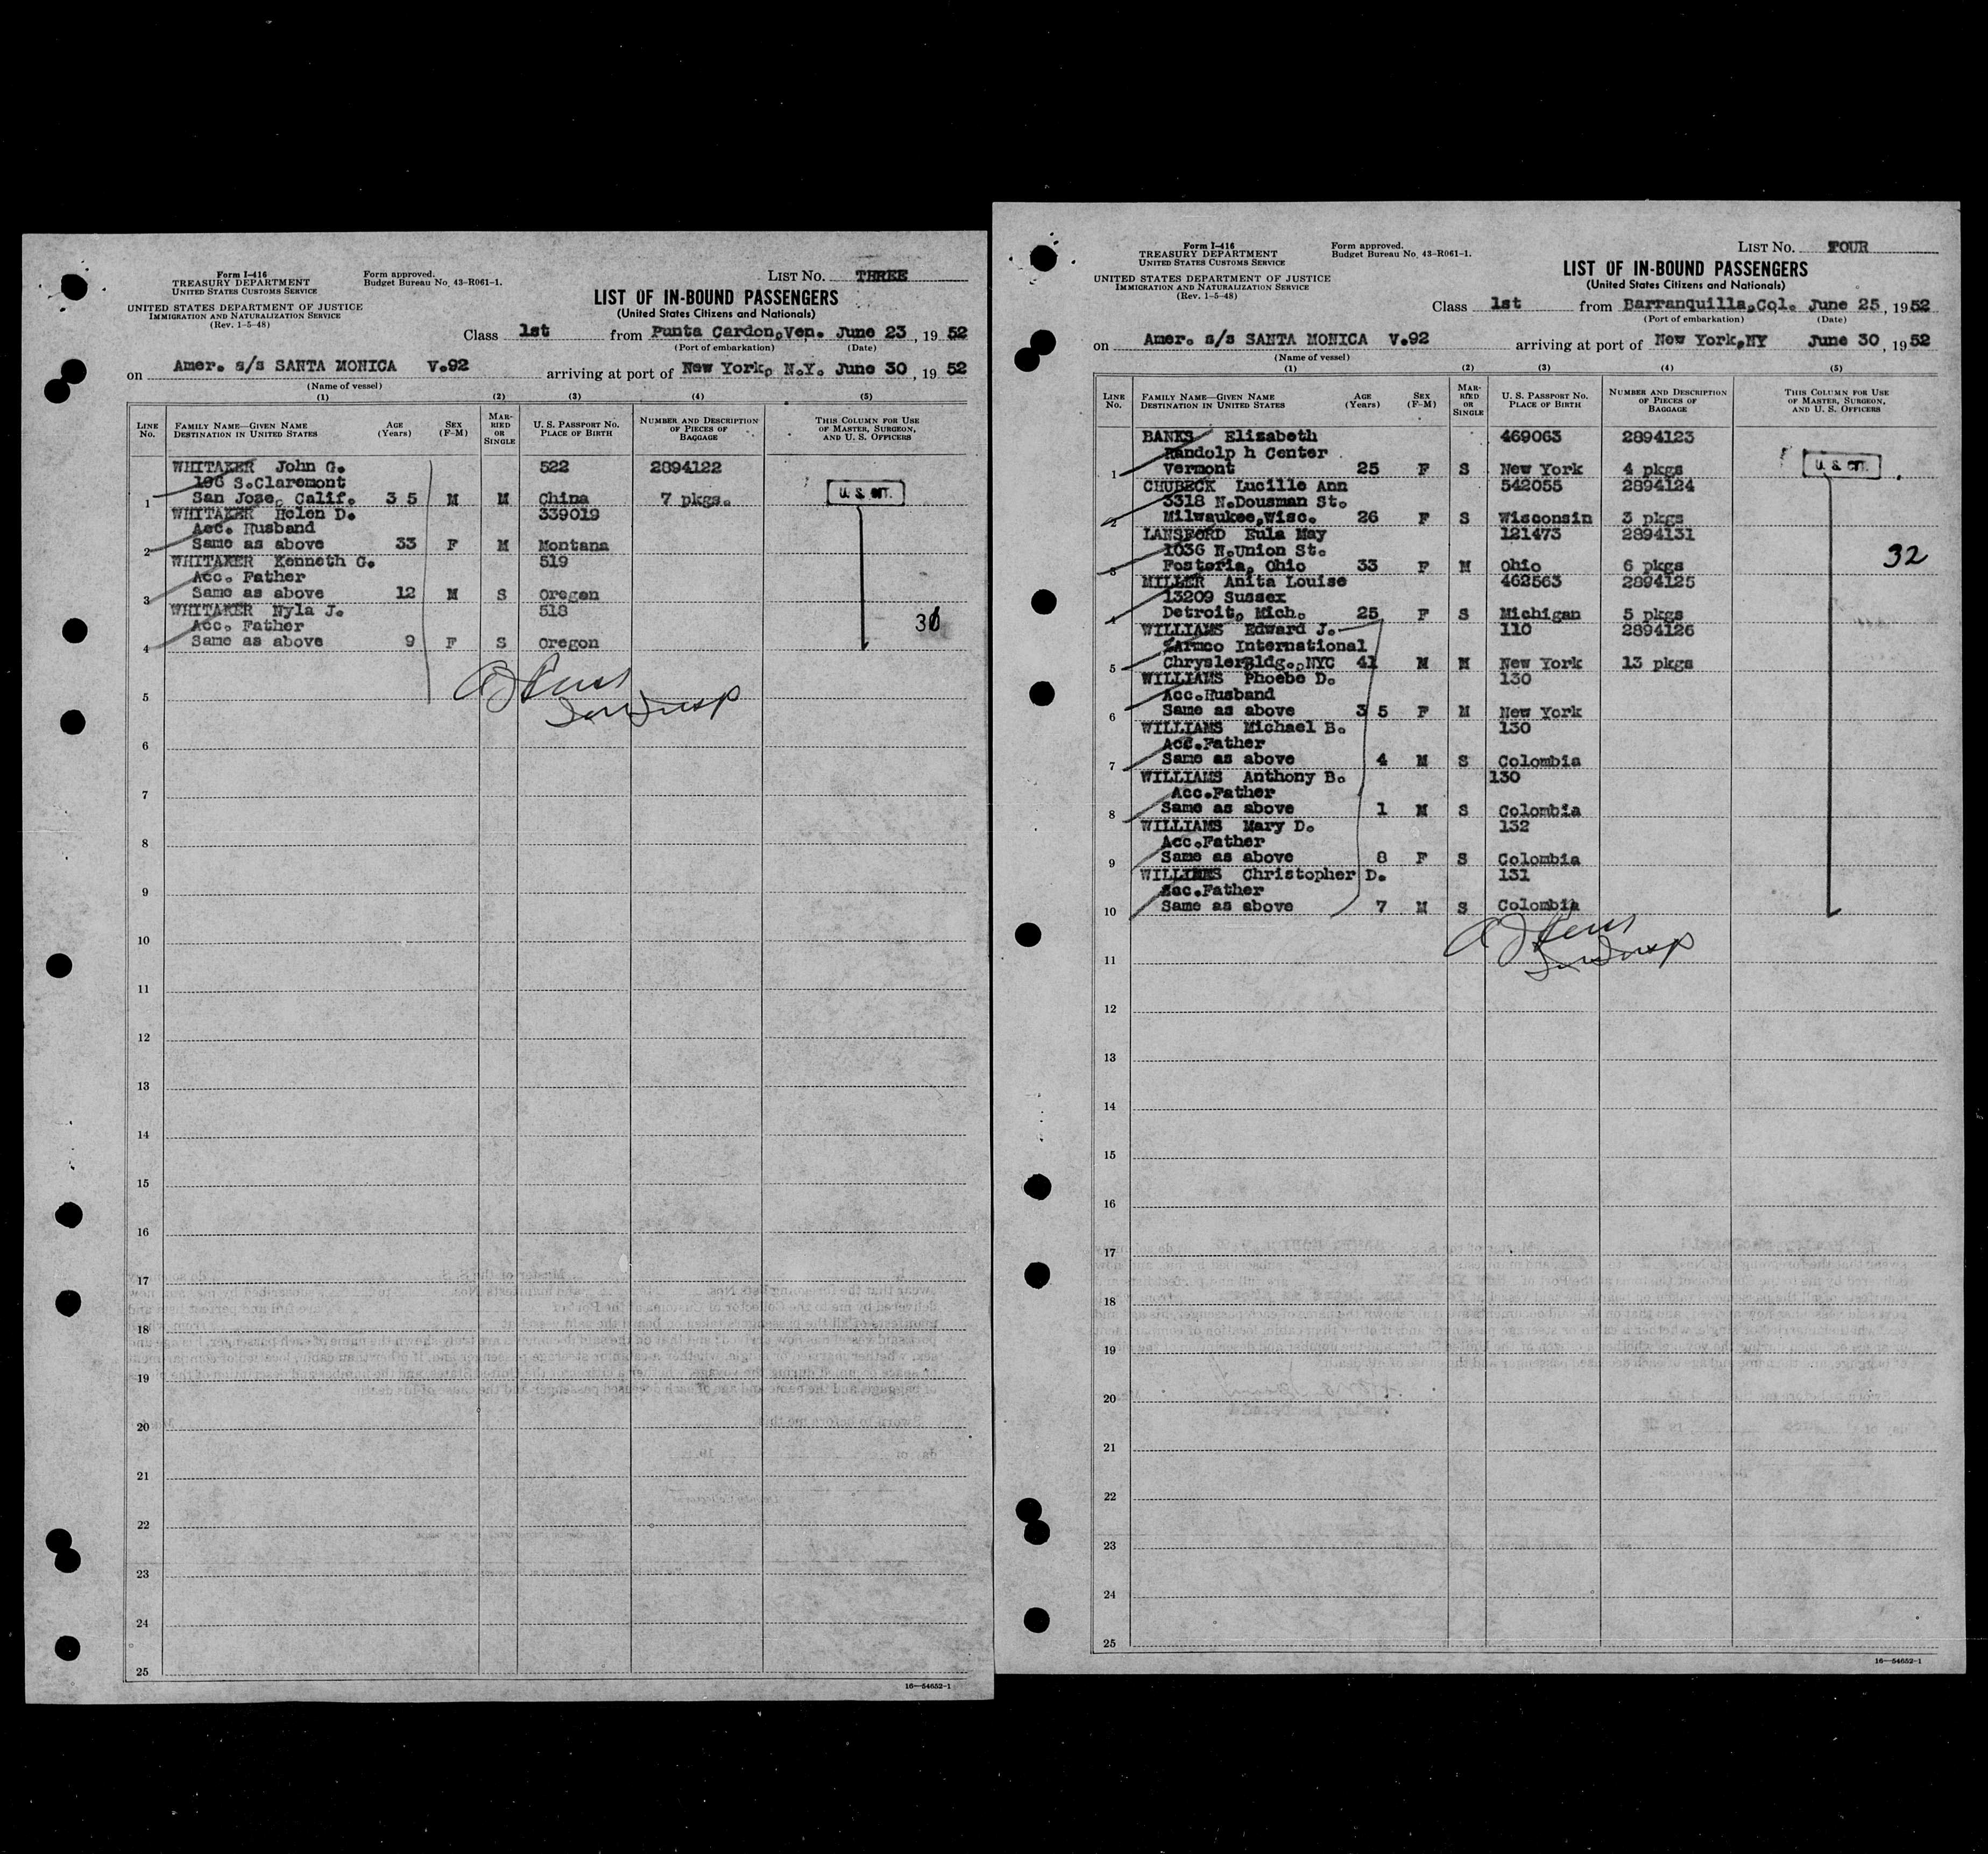 Form I-416
TREASURY DEPARTMENT
UNITED STATES CUSTOMS SERVICE
UNITED STATES DEPARTMENT OF JUSTICE
IMMIGRATION AND NATURALIZATION SERVICE
(Rev. 1-5-48)
Form approved.
Budget Bureau No. 43-R061-1.
LIST NO. THREE
LIST OF IN-BOUND PASSENGERS
(United States Citizens and Nationals)
Class 1st from Punta Cardon, Ven. June 23, 1952
(Port of embarkation) (Date)
on Amer. s/s SANTA MONICA V.92 arriving at port of New York, N.Y. June 30, 1952
(Name of vessel)
(1) (2) (3) (4) (5)
LINE No. FAMILY NAME—GIVEN NAME DESTINATION IN UNITED STATES AGE (Years) SEX (F-M) MARRIED OR SINGLE U. S. PASSPORT NO. PLACE OF BIRTH NUMBER AND DESCRIPTION OF PIECES OF BAGGAGE THIS COLUMN FOR USE OF MASTER, SURGEON, AND U. S. OFFICERS
WHITAKER John G. 522 2894122
196 S.Claremont
1 San Jose, Calif. 3 5 M M China 7 pkgs. U. S. CIT.
WHITAKER Helen D. 339019
Acc. Husband
2 Same as above 33 F M Montana
WHITAKER Kenneth G. 519
Acc. Father
3 Same as above 12 M S Oregon
WHITAKER Nyla J. 518
Acc. Father
4 Same as above 9 F S Oregon
5
6
7
8
9
10
11
12
13
14
15
16
17
18
19
20
21
22
23
24
25
16—54652-1
Form I-416
TREASURY DEPARTMENT
UNITED STATES CUSTOMS SERVICE
UNITED STATES DEPARTMENT OF JUSTICE
IMMIGRATION AND NATURALIZATION SERVICE
(Rev. 1-5-48)
Form approved.
Budget Bureau No. 43-R061-1.
LIST NO. FOUR
LIST OF IN-BOUND PASSENGERS
(United States Citizens and Nationals)
Class 1st from Barranquilla, Col. June 25, 1952
(Port of embarkation) (Date)
on Amer. s/s SANTA MONICA V.92 arriving at port of New York,NY June 30, 1952
(Name of vessel)
(1) (2) (3) (4) (5)
LINE No. FAMILY NAME—GIVEN NAME DESTINATION IN UNITED STATES AGE (Years) SEX (F-M) MARRIED OR SINGLE U. S. PASSPORT NO. PLACE OF BIRTH NUMBER AND DESCRIPTION OF PIECES OF BAGGAGE THIS COLUMN FOR USE OF MASTER, SURGEON, AND U. S. OFFICERS
BANKS Elizabeth 469063 2894123
Randolp h Center
1 Vermont 25 F S New York 4 pkgs U. S. CIT.
CHUBECK Lucille Ann 542055 2894124
3318 N.Dousman St.
2 Milwaukee,Wisc. 26 F S Wisconsin 3 pkgs
LANSFORD Eula May 121473 2894131
1036 N.Union St.
3 Fostoria, Ohio 33 F M Ohio 6 pkgs 32
MILLER Anita Louise 462563 2894125
13209 Sussex
4 Detroit, Mich. 25 F S Michigan 5 pkgs
WILLIAMS Edward J. 110 2894126
%Armco International
5 ChryslerBldg.,NYC 41 M M New York 13 pkgs
WILLIAMS Phoebe D. 130
Acc.Husband
6 Same as above 3 5 F M New York
WILLIAMS Michael B. 130
Acc.Father
7 Same as above 4 M S Colombia
WILLIAMS Anthony B. 130
Acc.Father
8 Same as above 1 M S Colombia
WILLIAMS Mary D. 132
Acc.Father
9 Same as above 8 F S Colombia
WILLIAMS Christopher D. 131
Acc.Father
10 Same as above 7 M S Colombia
11
12
13
14
15
16
17
18
19
20
21
22
23
24
25
16—54652-1